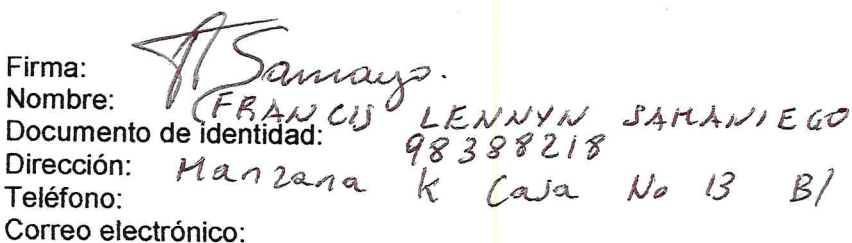 Firma: Samayo.
Nombre: FRANCIS LENNYN SAMANIEGO
Documento de identidad: 98388218
Dirección: Manzana K Casa No 13 B/
Teléfono:
Correo electrónico: